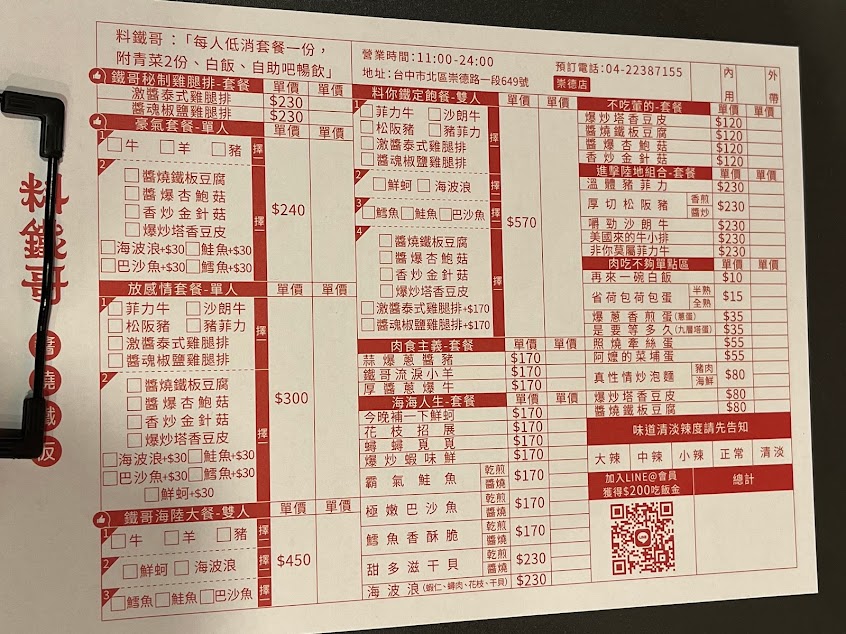 料鐵哥
醬燒鐵板
料鐵哥：「每人低消套餐一份，
附青菜2份、白飯、自助吧暢飲」
營業時間：11:00-24:00
地址：台中市北區崇德路一段649號
預訂電話：04-22387155
崇德店
內用
外帶
鐵哥秘制雞腿排-套餐 單價 單價
激醬泰式雞腿排 $230
醬魂椒鹽雞腿排 $230
豪氣套餐-單人 單價 單價
1 牛 羊 豬 擇一
2
醬燒鐵板豆腐
醬爆杏鮑菇
香炒金針菇
爆炒塔香豆皮
海波浪+$30 鮭魚+$30
巴沙魚+$30 鱈魚+$30
擇一
$240
放感情套餐-單人 單價 單價
1 菲力牛 沙朗牛
松阪豬 豬菲力
激醬泰式雞腿排
醬魂椒鹽雞腿排
擇一
2
醬燒鐵板豆腐
醬爆杏鮑菇
香炒金針菇
爆炒塔香豆皮
海波浪+$30 鮭魚+$30
巴沙魚+$30 鱈魚+$30
鮮蚵+$30
擇一
$300
鐵哥海陸大餐-雙人 單價 單價
1 牛 羊 豬 擇一
2 鮮蚵 海波浪 擇一
3 鱈魚 鮭魚 巴沙魚 擇一
$450
料你鐵定飽餐-雙人 單價 單價
1 菲力牛 沙朗牛
松阪豬 豬菲力
激醬泰式雞腿排
醬魂椒鹽雞腿排
擇一
2 鮮蚵 海波浪 擇一
3 鱈魚 鮭魚 巴沙魚 擇一
4
醬燒鐵板豆腐
醬爆杏鮑菇
香炒金針菇
爆炒塔香豆皮
激醬泰式雞腿排+$170
醬魂椒鹽雞腿排+$170
擇一
$570
肉食主義-套餐 單價 單價
蒜爆蔥醬豬 $170
鐵哥流淚小羊 $170
厚醬蔥爆牛 $170
海海人生-套餐 單價 單價
今晚補一下鮮蚵 $170
花枝招展 $170
蟳蟳覓覓 $170
爆炒蝦味鮮 $170
霸氣鮭魚 乾煎 醬燒 $170
極嫩巴沙魚 乾煎 醬燒 $170
鱈魚香酥脆 乾煎 醬燒 $170
甜多滋干貝 乾煎 醬燒 $230
海波浪(蝦仁、蟳肉、花枝、干貝) $230
不吃葷的-套餐 單價 單價
爆炒塔香豆皮 $120
醬燒鐵板豆腐 $120
醬爆杏鮑菇 $120
香炒金針菇 $120
進擊陸地組合-套餐 單價 單價
溫體豬菲力 $230
厚切松阪豬 香煎 醬炒 $230
嚼勁沙朗牛 $230
美國來的牛小排 $230
非你莫屬菲力牛 $230
肉吃不夠單點區 單價 單價
再來一碗白飯 $10
省荷包荷包蛋 半熟 全熟 $15
爆蔥香煎蛋(蔥蛋) $35
是要等多久(九層塔蛋) $35
照燒牽絲蛋 $55
阿嬤的菜埔蛋 $55
真性情炒泡麵 豬肉 海鮮 $80
爆炒塔香豆皮 $80
醬燒鐵板豆腐 $80
味道清淡辣度請先告知
大辣 中辣 小辣 正常 清淡
加入LINE@會員
獲得$200吃飯金
總計